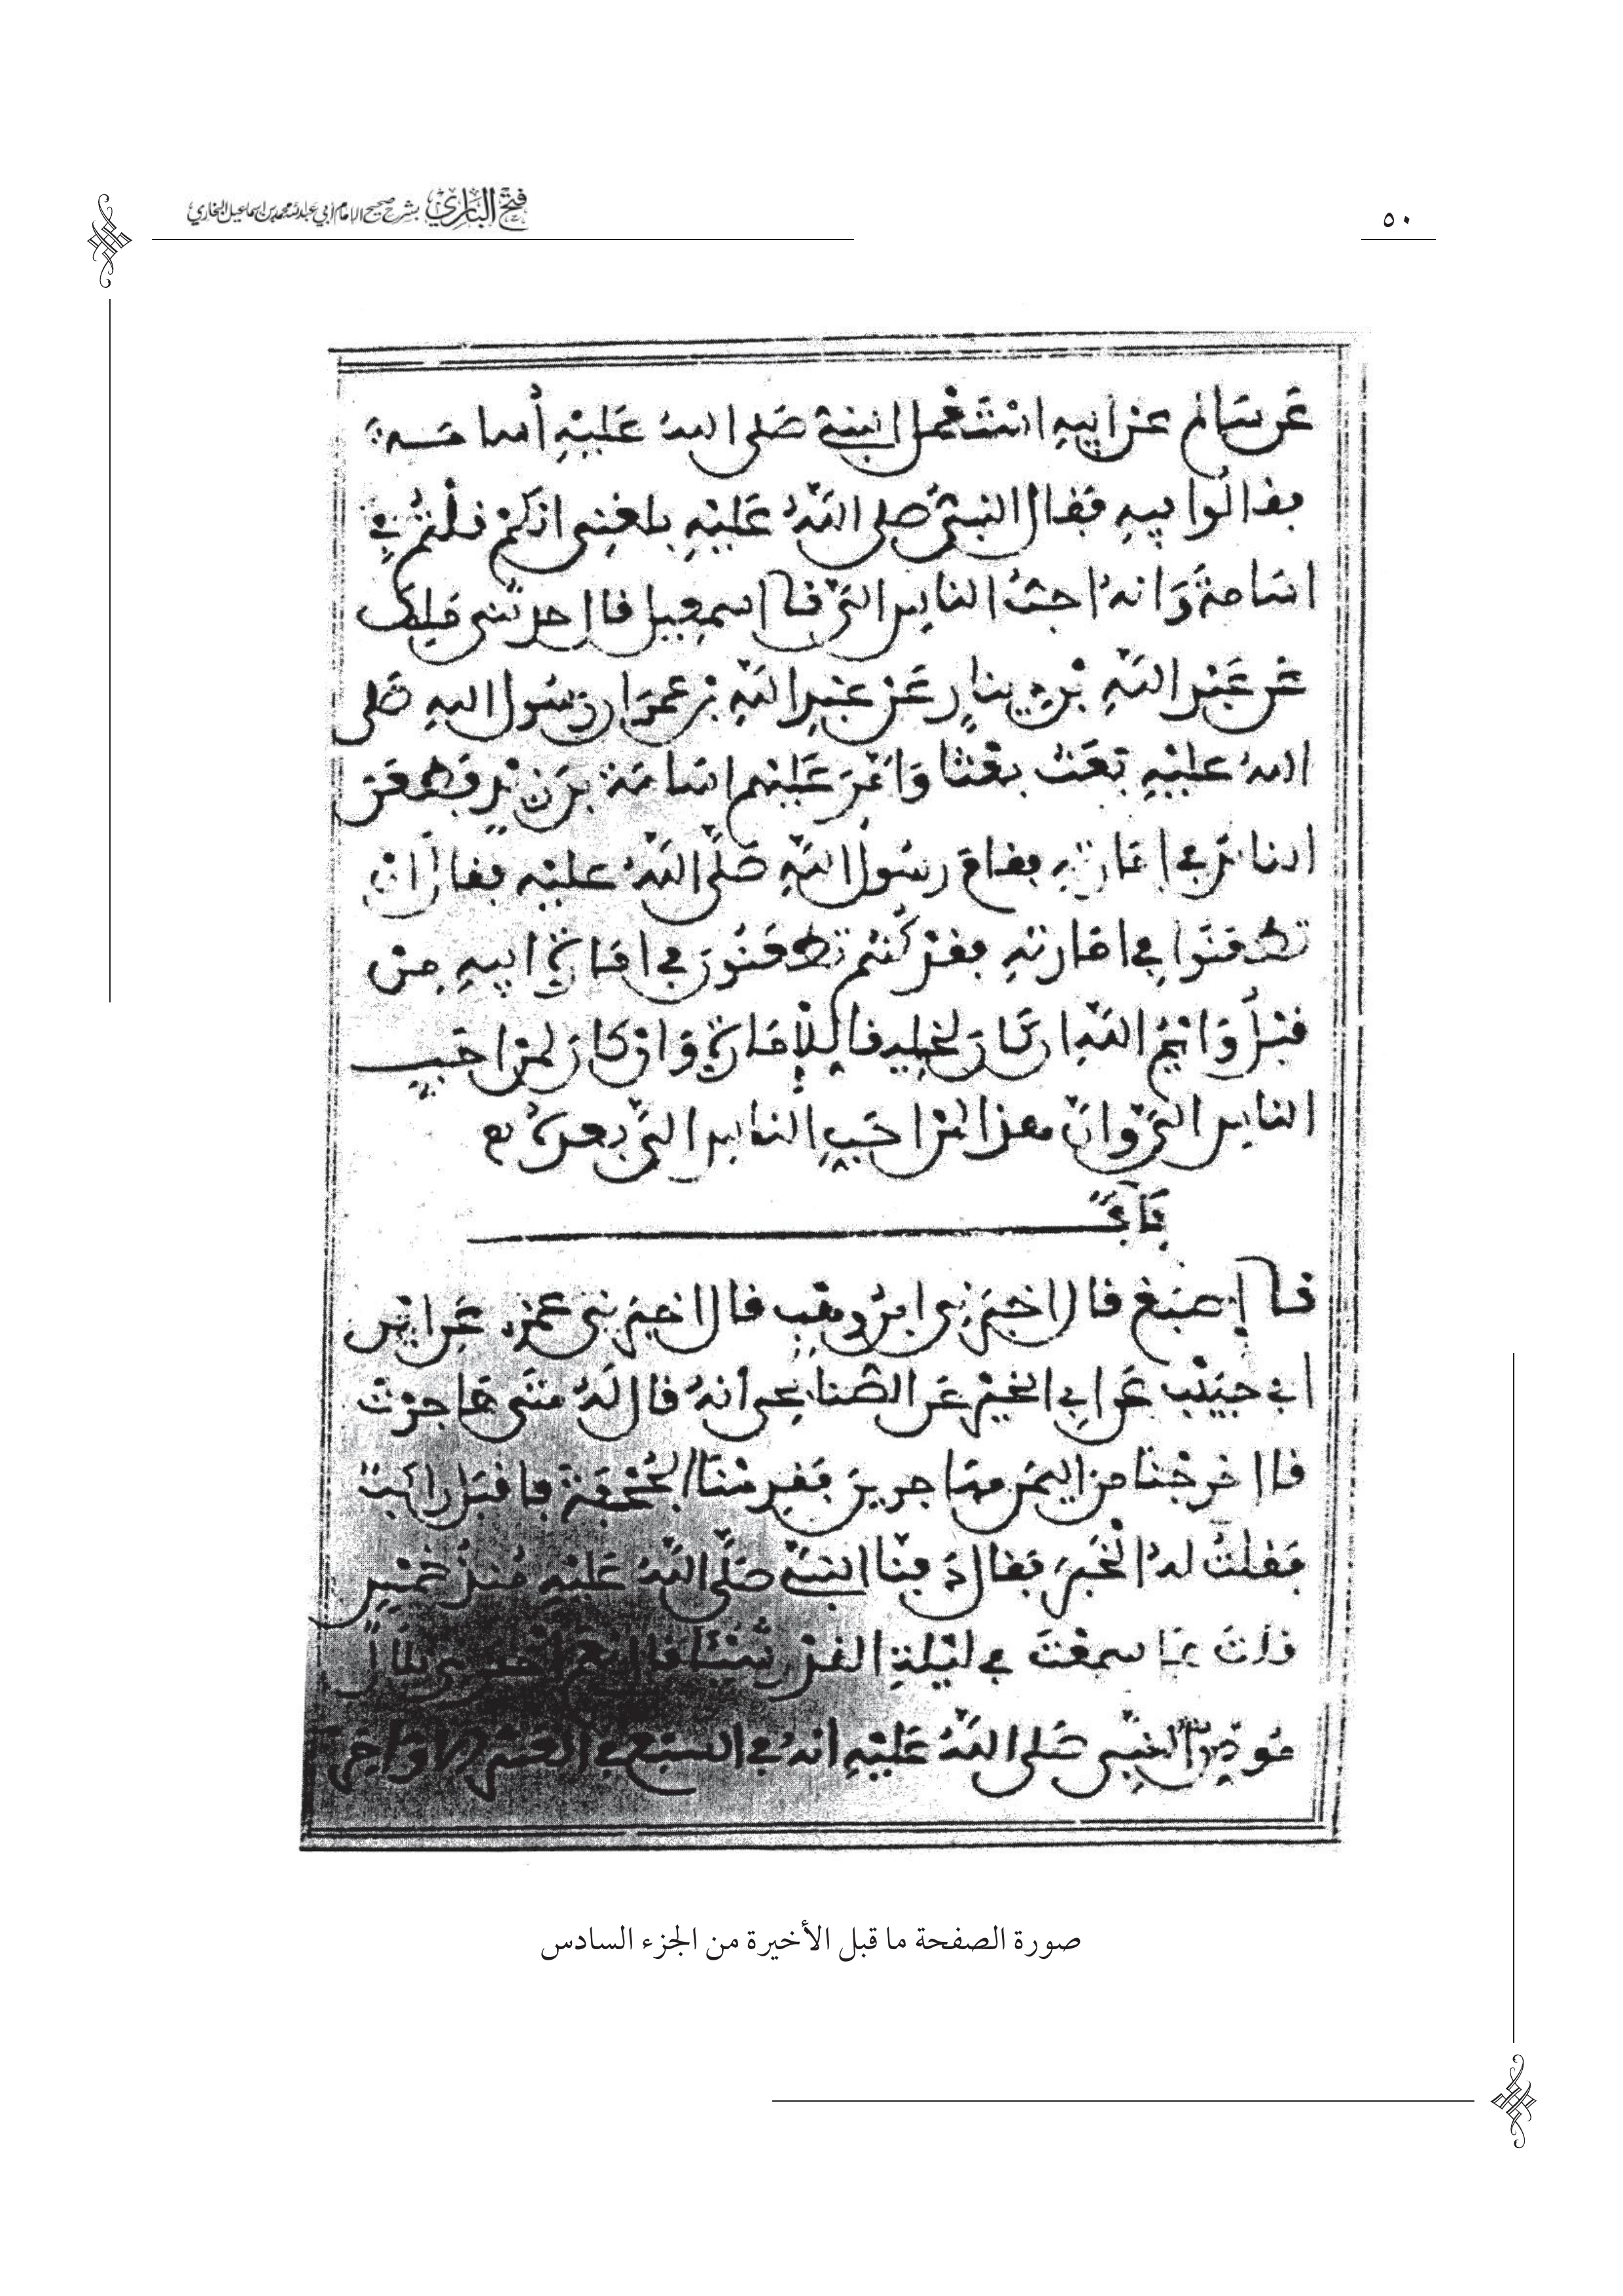 ٥٠
فتح الباري بشرح صحيح الإمام أبي عبد الله محمد بن إسماعيل البخاري
عَن سَالم عن ابيهِ اسْتَعْمل النبيّ صَلى اللهُ عَليْهِ أسامَــة
فقالُوا فيهِ فقال النبيّ صلى اللهُ عَليْهِ بلغنِى انكمْ قلتمْ في
اسَامةَ وَانهُ احبّ الناسِ اليّ نـا اسمعِيل قال حدثنى مَلِك
عَن عَبْد اللهِ بْن دِينارٍ عَنْ عَبْدِ اللهِ بن عمَر ان رسُول اللهِ صَلى
اللهُ عليْهِ بَعَث بعْثا وَامّرَ عَليْهم اسَامَة بنَ زيْدٍ فطعَن
الناسُ في امَارتِهِ فقامَ رسُول اللهِ صَلّى اللهُ عليْهِ فقال انْ
تطعَنُوا في امَارتهِ فقدْ كُنتم تطعَنُونَ في امَارةِ ابيهِ مِنْ
قبْلُ وَايْمُ اللهِ ان كَانَ لخليقا لِلإمَارةِ وَانْ كَانَ لمنْ احَبِّ
الناسِ اليّ وانّ هذا لمنْ احَبِّ الناسِ اليّ بعدَهُ
بَابٌ
نـا أصْبَغ قال اخبَرَنِى ابنُ وهْبٍ قال اخبَرَنِى عمْرٌو عَن ابْن
ابي حبيْب عَن ابِي الخيْر عَن الصُّنابحِى أنهُ قال لَهُ مَتَى هَاجرْتَ
قال خرجْنا من اليمَن مهَاجرينَ فقدِمْنَا الجُحْفةَ فاقبَل راكبٌ
فقلتُ لهُ الخَبَرَ فقال دَفنّا النبيّ صَلّى اللهُ عَليْهِ مُنذُ خمْسٍ
قلتُ مَا سمعْتَ في ليْلةِ القدْرِ شيْئا قال نعَمْ اخبَرنِى بلَال
مُوذِّنُ النبِّى صَلى اللهُ عَليْهِ انهُ في السبْع في العشْر الاوَاخِر
صورة الصفحة ما قبل الأخيرة من الجزء السادس